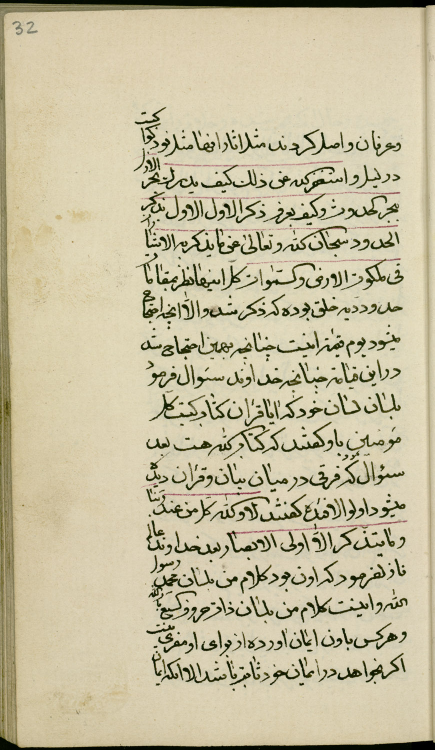 32
وعرفان واصل کردند مثل انها را فضا مثل نور کوا
در لیل و استغفر الله عن ذلک کیف یدرک بحر
بحر الحدوث و کیف یعرف ذکر الاول الاول بذکر
الحدود سبحان الله و تعالی عن ما یذکر به الاشیاء
فی ملکوت الارض و السموات کل اینها نظر بمقامات
حدودیه خلق بوده که ذکر شد والا انچه احتجاج
میشود یوم قیمة اینست چنانچه بهمین احتجاج شد
در این قیامة چنانچه خداوند سئوال فرمود
بلسان لسان خود که ایا قران کتاب کیست کل
مؤمنین باو گفتند که کتاب الله هست بعد
سئوال کرد فرقی در میان بیان و قران دیده
میشود اولو الافئدة گفتند لا والله کل من عند ربنا
و ما یتذکر الا اولی الابصار بعد خداوند عالم
نازل فرمود که اون بود کلام من بلسان محمد رسول
الله و اینست کلام من بلسان ذات حروف السبع باب الله
و هر کس باون ایمان اورده از برای او مفری نیست
اگر بخواهد در ایمان خود ثابت باشد الا انکه ایمان